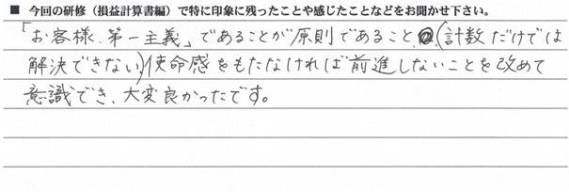 ■ 今回の研修（損益計算書編）で特に印象に残ったことや感じたことなどをお聞かせ下さい。
「お客様第一主義」であることが原則であること、(計数だけでは
解決できない)使命感をもたなければ前進しないことを改めて
意識でき、大変良かったです。